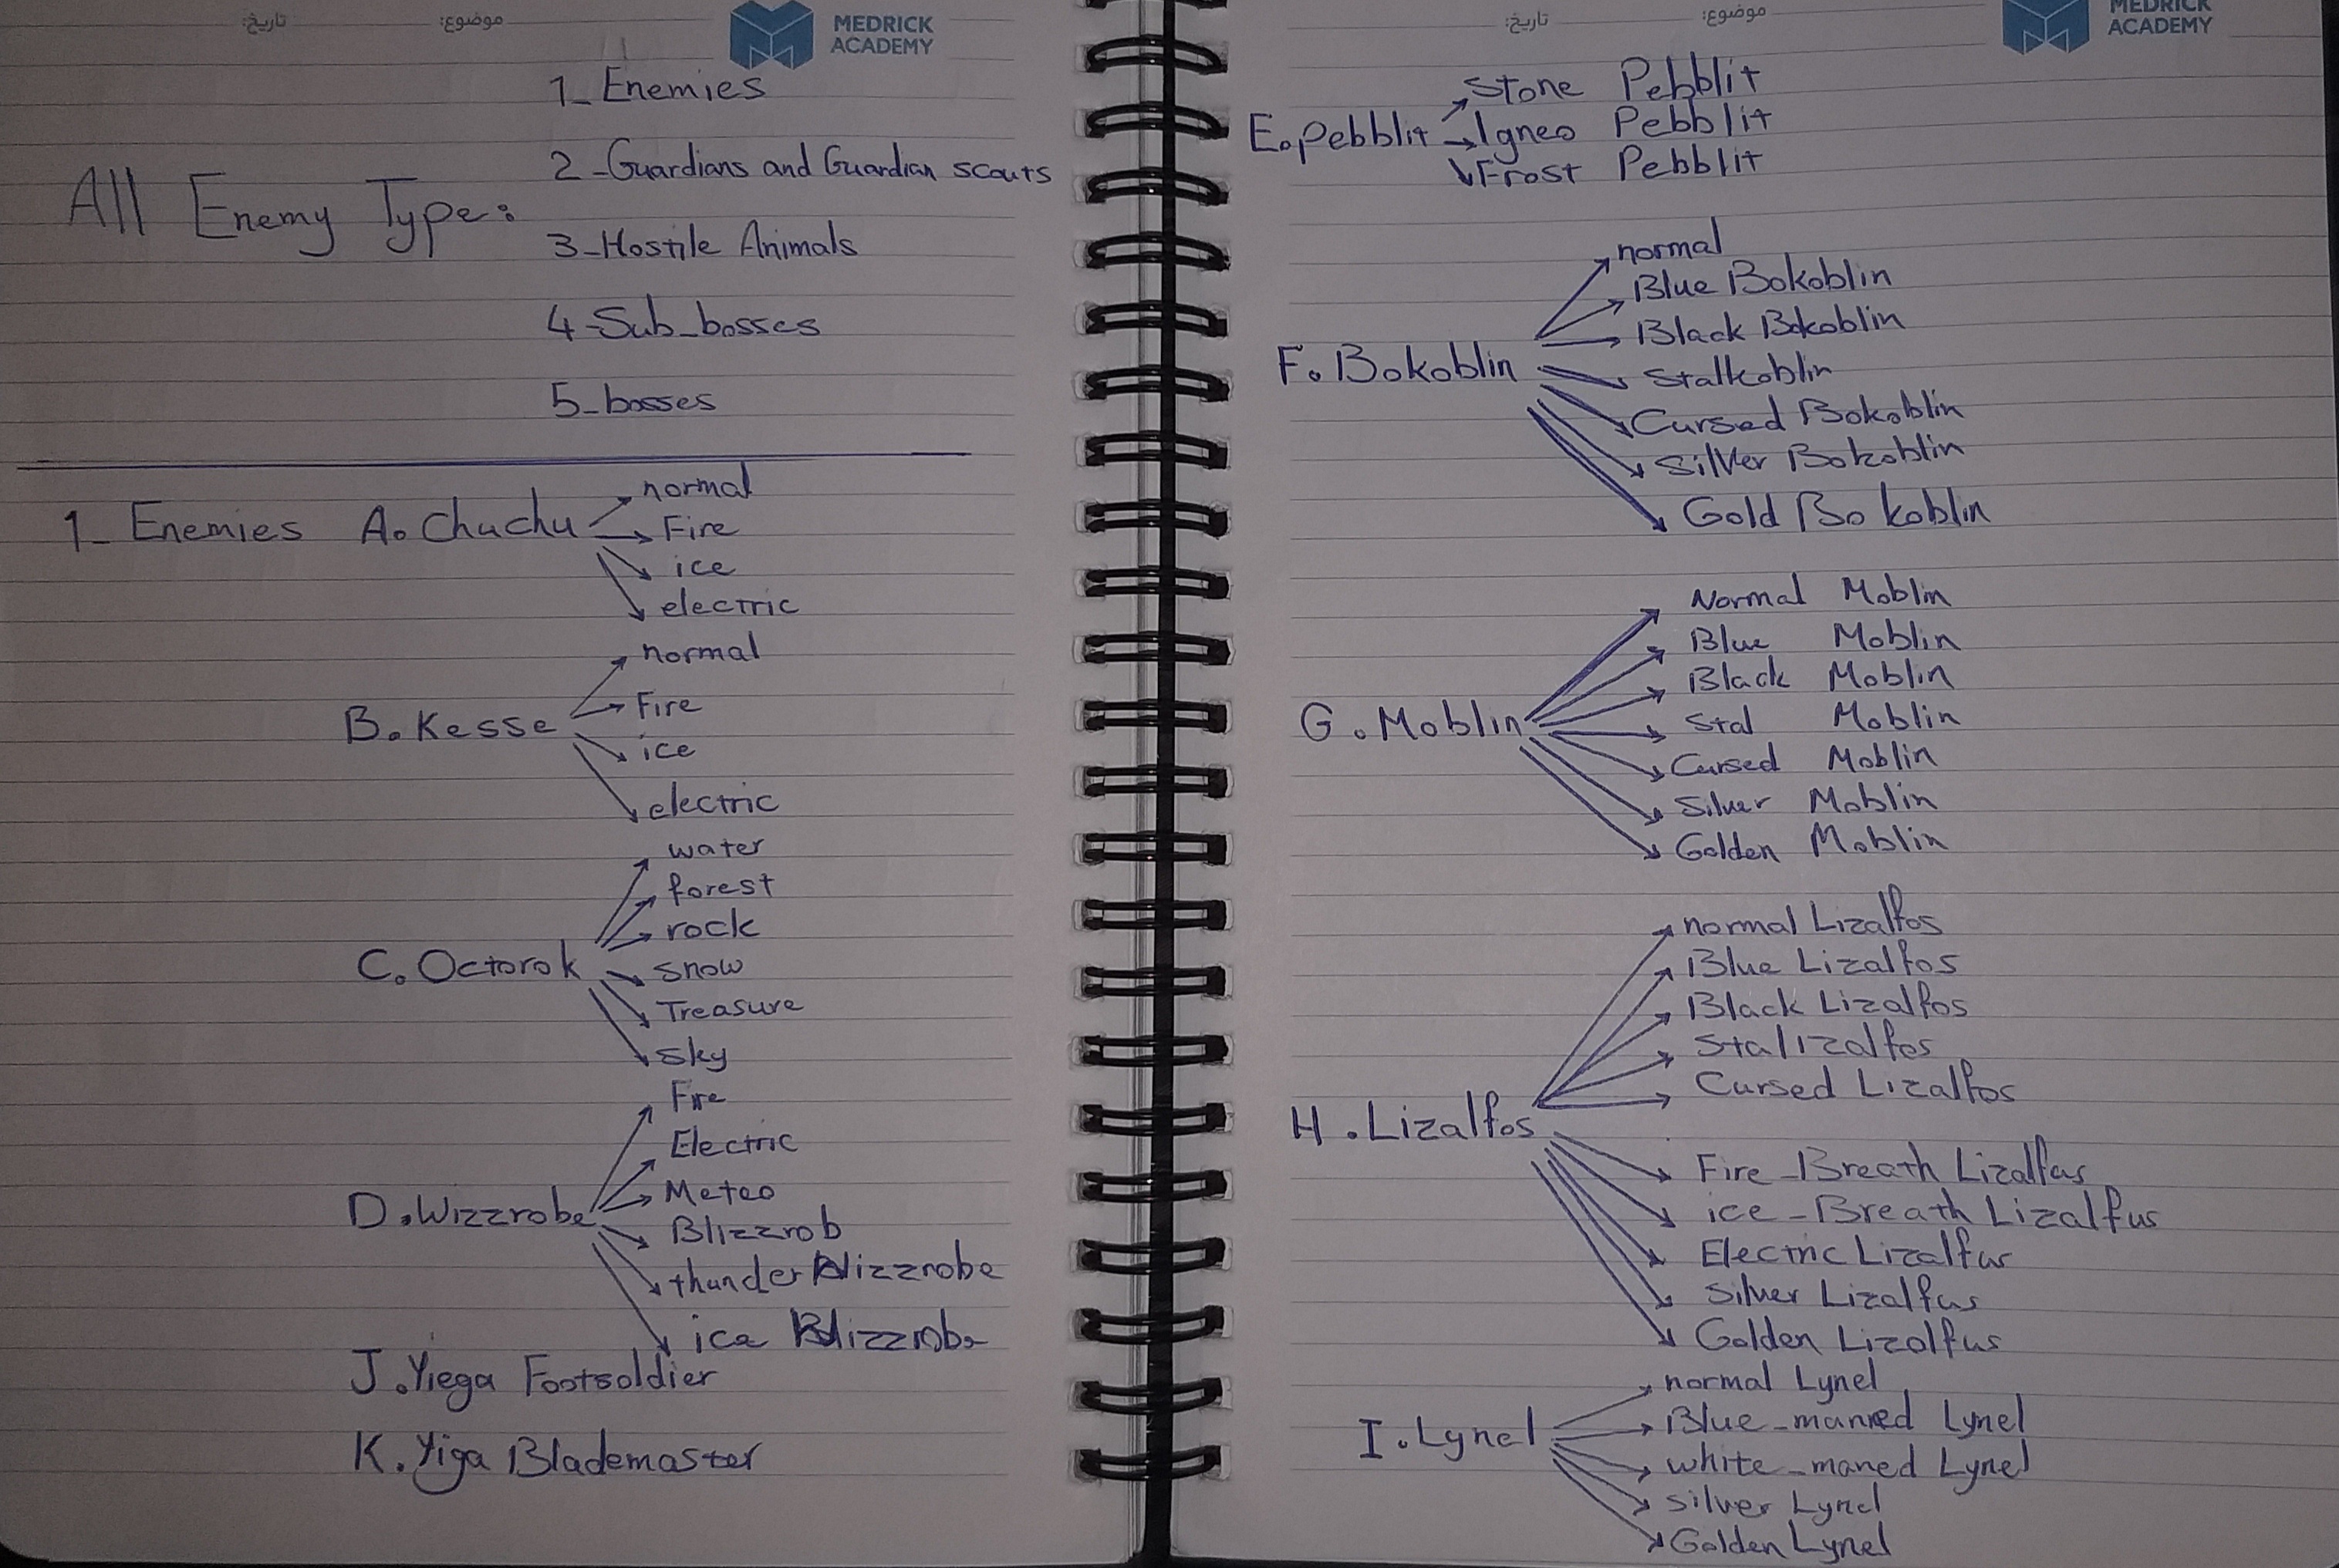 تاریخ:
موضوع:
MEDRICK
ACADEMY
All Enemy Type:
1_ Enemies
2_Guardians and Guardian scouts
3_Hostile Animals
4-Sub_bosses
5_bosses
1_ Enemies A. Chuchu
normal
Fire
ice
electric
B. Kesse
normal
Fire
ice
electric
C. Octorok
water
forest
rock
snow
Treasure
sky
D. Wizzrobe
Fire
Electric
Meteo
Blizzrob
thunder Blizzrobe
ice Blizzrobe
J. Yiega Footsoldier
K. Yiga Blademaster
تاریخ:
موضوع:
MEDRICK
ACADEMY
E. Pebblit
Stone Pebblit
Igneo Pebblit
Frost Pebblit
F. Bokoblin
normal
Blue Bokoblin
Black Bokoblin
Stalkoblin
Cursed Bokoblin
Silver Bokoblin
Gold Bokoblin
G. Moblin
Normal Moblin
Blue Moblin
Black Moblin
Stal Moblin
Cursed Moblin
Silver Moblin
Golden Moblin
H. Lizalfos
normal Lizalfos
Blue Lizalfos
Black Lizalfos
Stalizalfos
Cursed Lizalfos
Fire_Breath Lizalfus
ice_Breath Lizalfus
Electric Lizalfus
Silver Lizalfus
Golden Lizalfus
I. Lynel
normal Lynel
Blue_manned Lynel
white_maned Lynel
silver Lynel
Golden Lynel